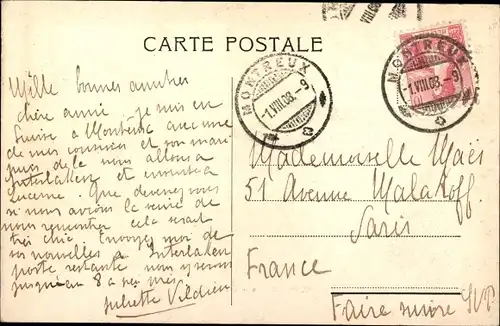 CARTE POSTALE
MONTREUX
-1.VIII.08.-9
MONTREUX
-1.VIII.08.-9
VIII.08
Mille bonnes amitiés
chère amie je suis en
Suisse à Montreux avec une
de mes cousines et son mari
puis de là nous allons à
Interlaken et ensuite à
Lucerne. Que devenez vous
si nous avions la veine de
nous rencontrer cela serait
très chic. Envoyez moi de
vos nouvelles à Interlaken
poste restante nous y serons
jusqu'au 8
Juliette Vildieu
Mademoiselle Maës
51 Avenue Malakoff
Paris
France
Faire suivre SVP